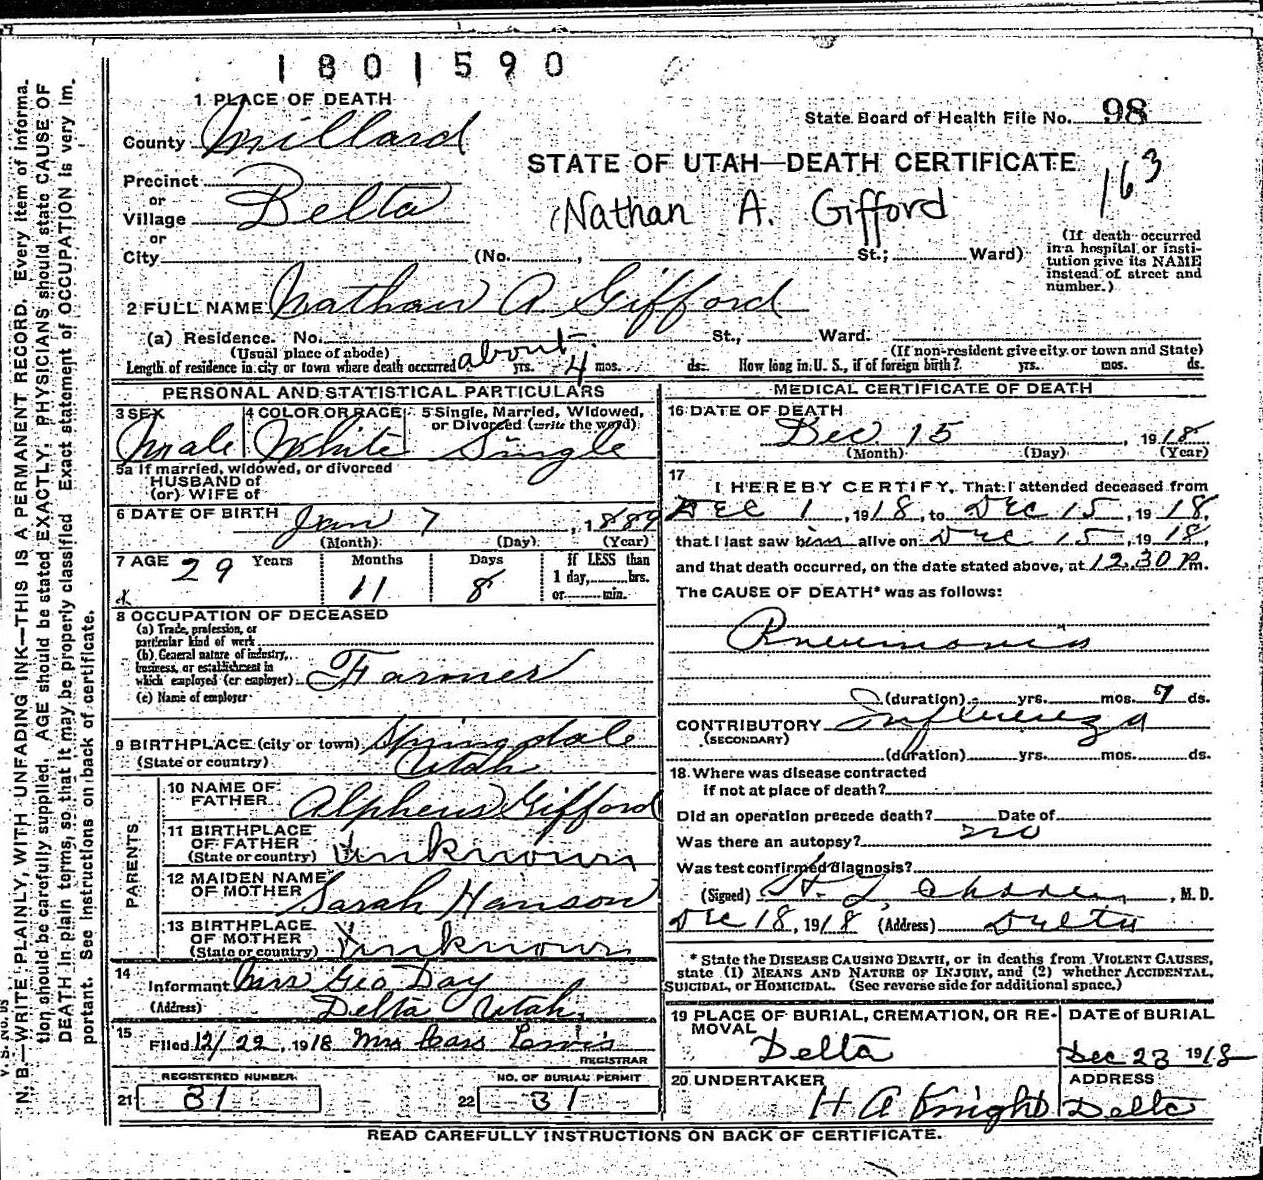 1801590
1 PLACE OF DEATH
State Board of Health File No. 98
County Millard
STATE OF UTAH—DEATH CERTIFICATE
163
Precinct
or
Village Delta
Nathan A. Gifford
or
City (No. , St.; Ward)
(If death occurred in a hospital or institution give its NAME instead of street and number.)
2 FULL NAME Nathan A Gifford
(a) Residence. No. St., Ward.
(Usual place of abode) (If non-resident give city or town and State)
Length of residence in city or town where death occurred about yrs. 4 mos. ds. How long in U. S., if of foreign birth? yrs. mos. ds.
PERSONAL AND STATISTICAL PARTICULARS
3 SEX 4 COLOR OR RACE 5 Single, Married, Widowed, or Divorced (write the word)
Male White Single
5a If married, widowed, or divorced
HUSBAND of
(or) WIFE of
6 DATE OF BIRTH Jan 7, 1889
(Month) (Day) (Year)
7 AGE 29 Years Months 11 Days 8 If LESS than 1 day, hrs. or min.
8 OCCUPATION OF DECEASED
(a) Trade, profession, or
particular kind of work
(b) General nature of industry,
business, or establishment in
which employed (or employer) Farmer
(c) Name of employer
9 BIRTHPLACE (city or town) Springdale
(State or country) Utah
PARENTS
10 NAME OF FATHER Alpheus Gifford
11 BIRTHPLACE OF FATHER (State or country) Unknown
12 MAIDEN NAME OF MOTHER Sarah Hanson
13 BIRTHPLACE OF MOTHER (State or country) Unknown
14 Informant Mrs Geo Day
(Address) Delta Utah
15 Filed 12/22, 1918 Mrs Cass Lewis
REGISTRAR
REGISTERED NUMBER NO. OF BURIAL PERMIT
21 31 22 31
MEDICAL CERTIFICATE OF DEATH
16 DATE OF DEATH
Dec 15, 1918
(Month) (Day) (Year)
17
I HEREBY CERTIFY, That I attended deceased from
Dec 1, 1918, to Dec 15, 1918,
that I last saw him alive on Dec 15, 1918,
and that death occurred, on the date stated above, at 12.30 Pm.
The CAUSE OF DEATH* was as follows:
Pneumonia
(duration) yrs. mos. 7 ds.
CONTRIBUTORY Influenza
(SECONDARY)
(duration) yrs. mos. ds.
18. Where was disease contracted
if not at place of death?
Did an operation precede death? Date of
Was there an autopsy? no
Was test confirmed diagnosis?
(Signed) , M. D.
Dec 18, 1918 (Address) Delta
* State the DISEASE CAUSING DEATH, or in deaths from VIOLENT CAUSES,
state (1) MEANS AND NATURE OF INJURY, and (2) whether ACCIDENTAL,
SUICIDAL, or HOMICIDAL. (See reverse side for additional space.)
19 PLACE OF BURIAL, CREMATION, OR REMOVAL DATE of BURIAL
Delta Dec 23 1918
20 UNDERTAKER ADDRESS
H A Knight Delta
READ CAREFULLY INSTRUCTIONS ON BACK OF CERTIFICATE.
N. B.—WRITE PLAINLY, WITH UNFADING INK—THIS IS A PERMANENT RECORD. Every item of information should be carefully supplied. AGE should be stated EXACTLY. PHYSICIANS should state CAUSE OF DEATH in plain terms, so that it may be properly classified. Exact statement of OCCUPATION is very important. See instructions on back of certificate.